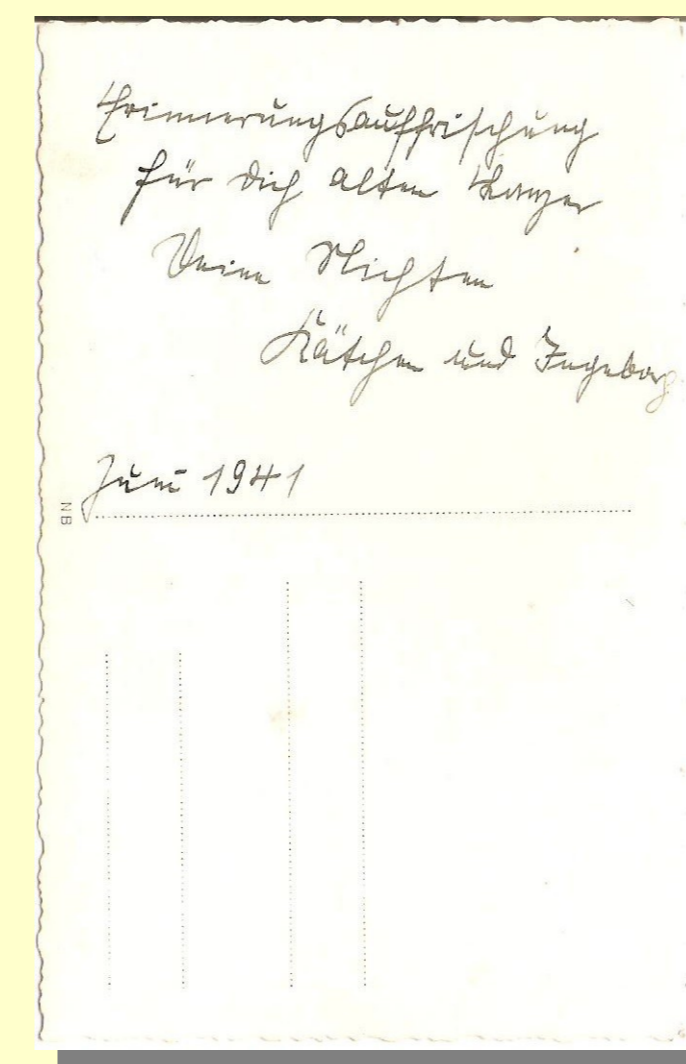 Erinnerungsauffrischung
für Dich alten
Deine Nichten
Kätchen und Ingeborg
Juni 1941
NB